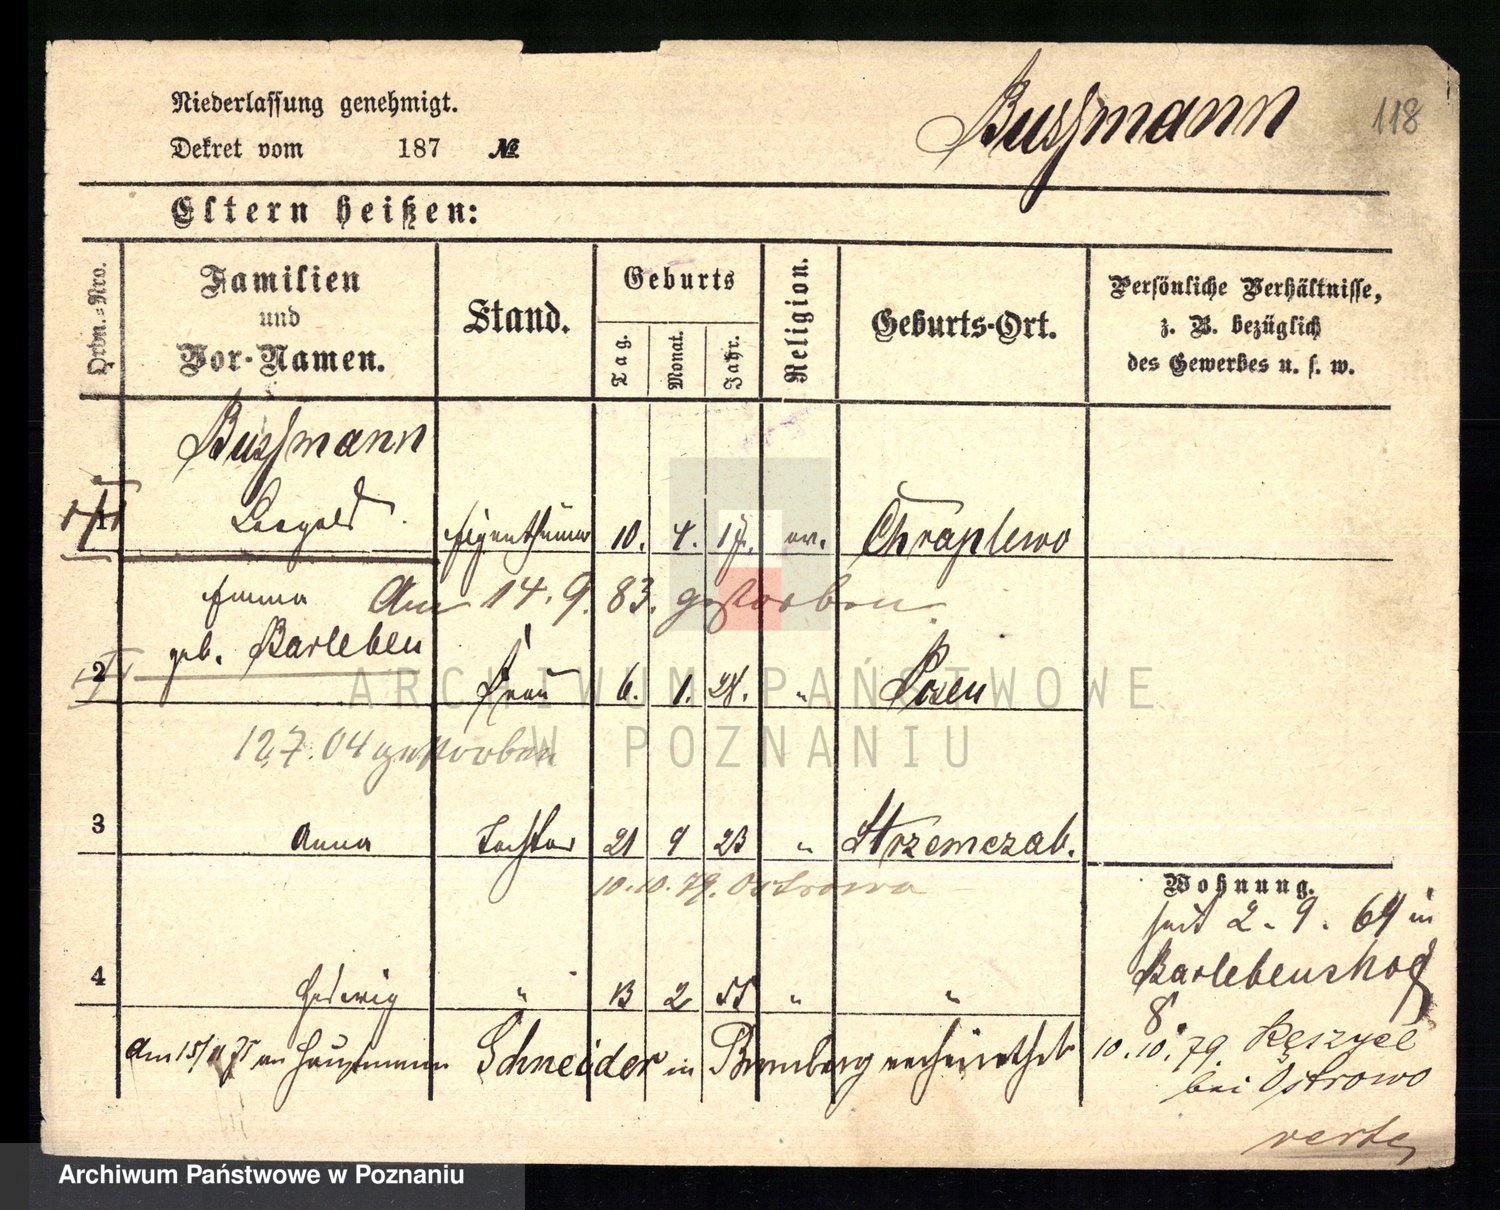 Niederlassung genehmigt.
Dekret vom 187 №
Bussmann 118
Eltern heißen:
Ordn.-Nro.
Familien
und
Vor-Namen.
Stand.
Geburts
Tag.
Monat.
Jahr.
Religion.
Geburts-Ort.
Persönliche Verhältnisse,
z. B. bezüglich
des Gewerbes u. s. w.
Bussmann
1 Leopold Eigenthümer 10. 4. 17. ev. Chraplewo
Am 14. 9. 83. gestorben
Emma
geb. Barleben
2 Frau 6. 1. 28. " Posen
12.7.04 gestorben
3 Anna Tochter 21 9 Strzemczab.
10.10.79. Ostrowo
4 Hedwig " 13 2 55 " "
Am an Hauptmann Schneider in Bromberg verheirathet
Wohnung.
seit 2. 9. 64 in
Barlebenshof
8.
10.10.79.
bei Ostrowo
verte
ARCHIWUM PAŃSTWOWE
W POZNANIU
Archiwum Państwowe w Poznaniu